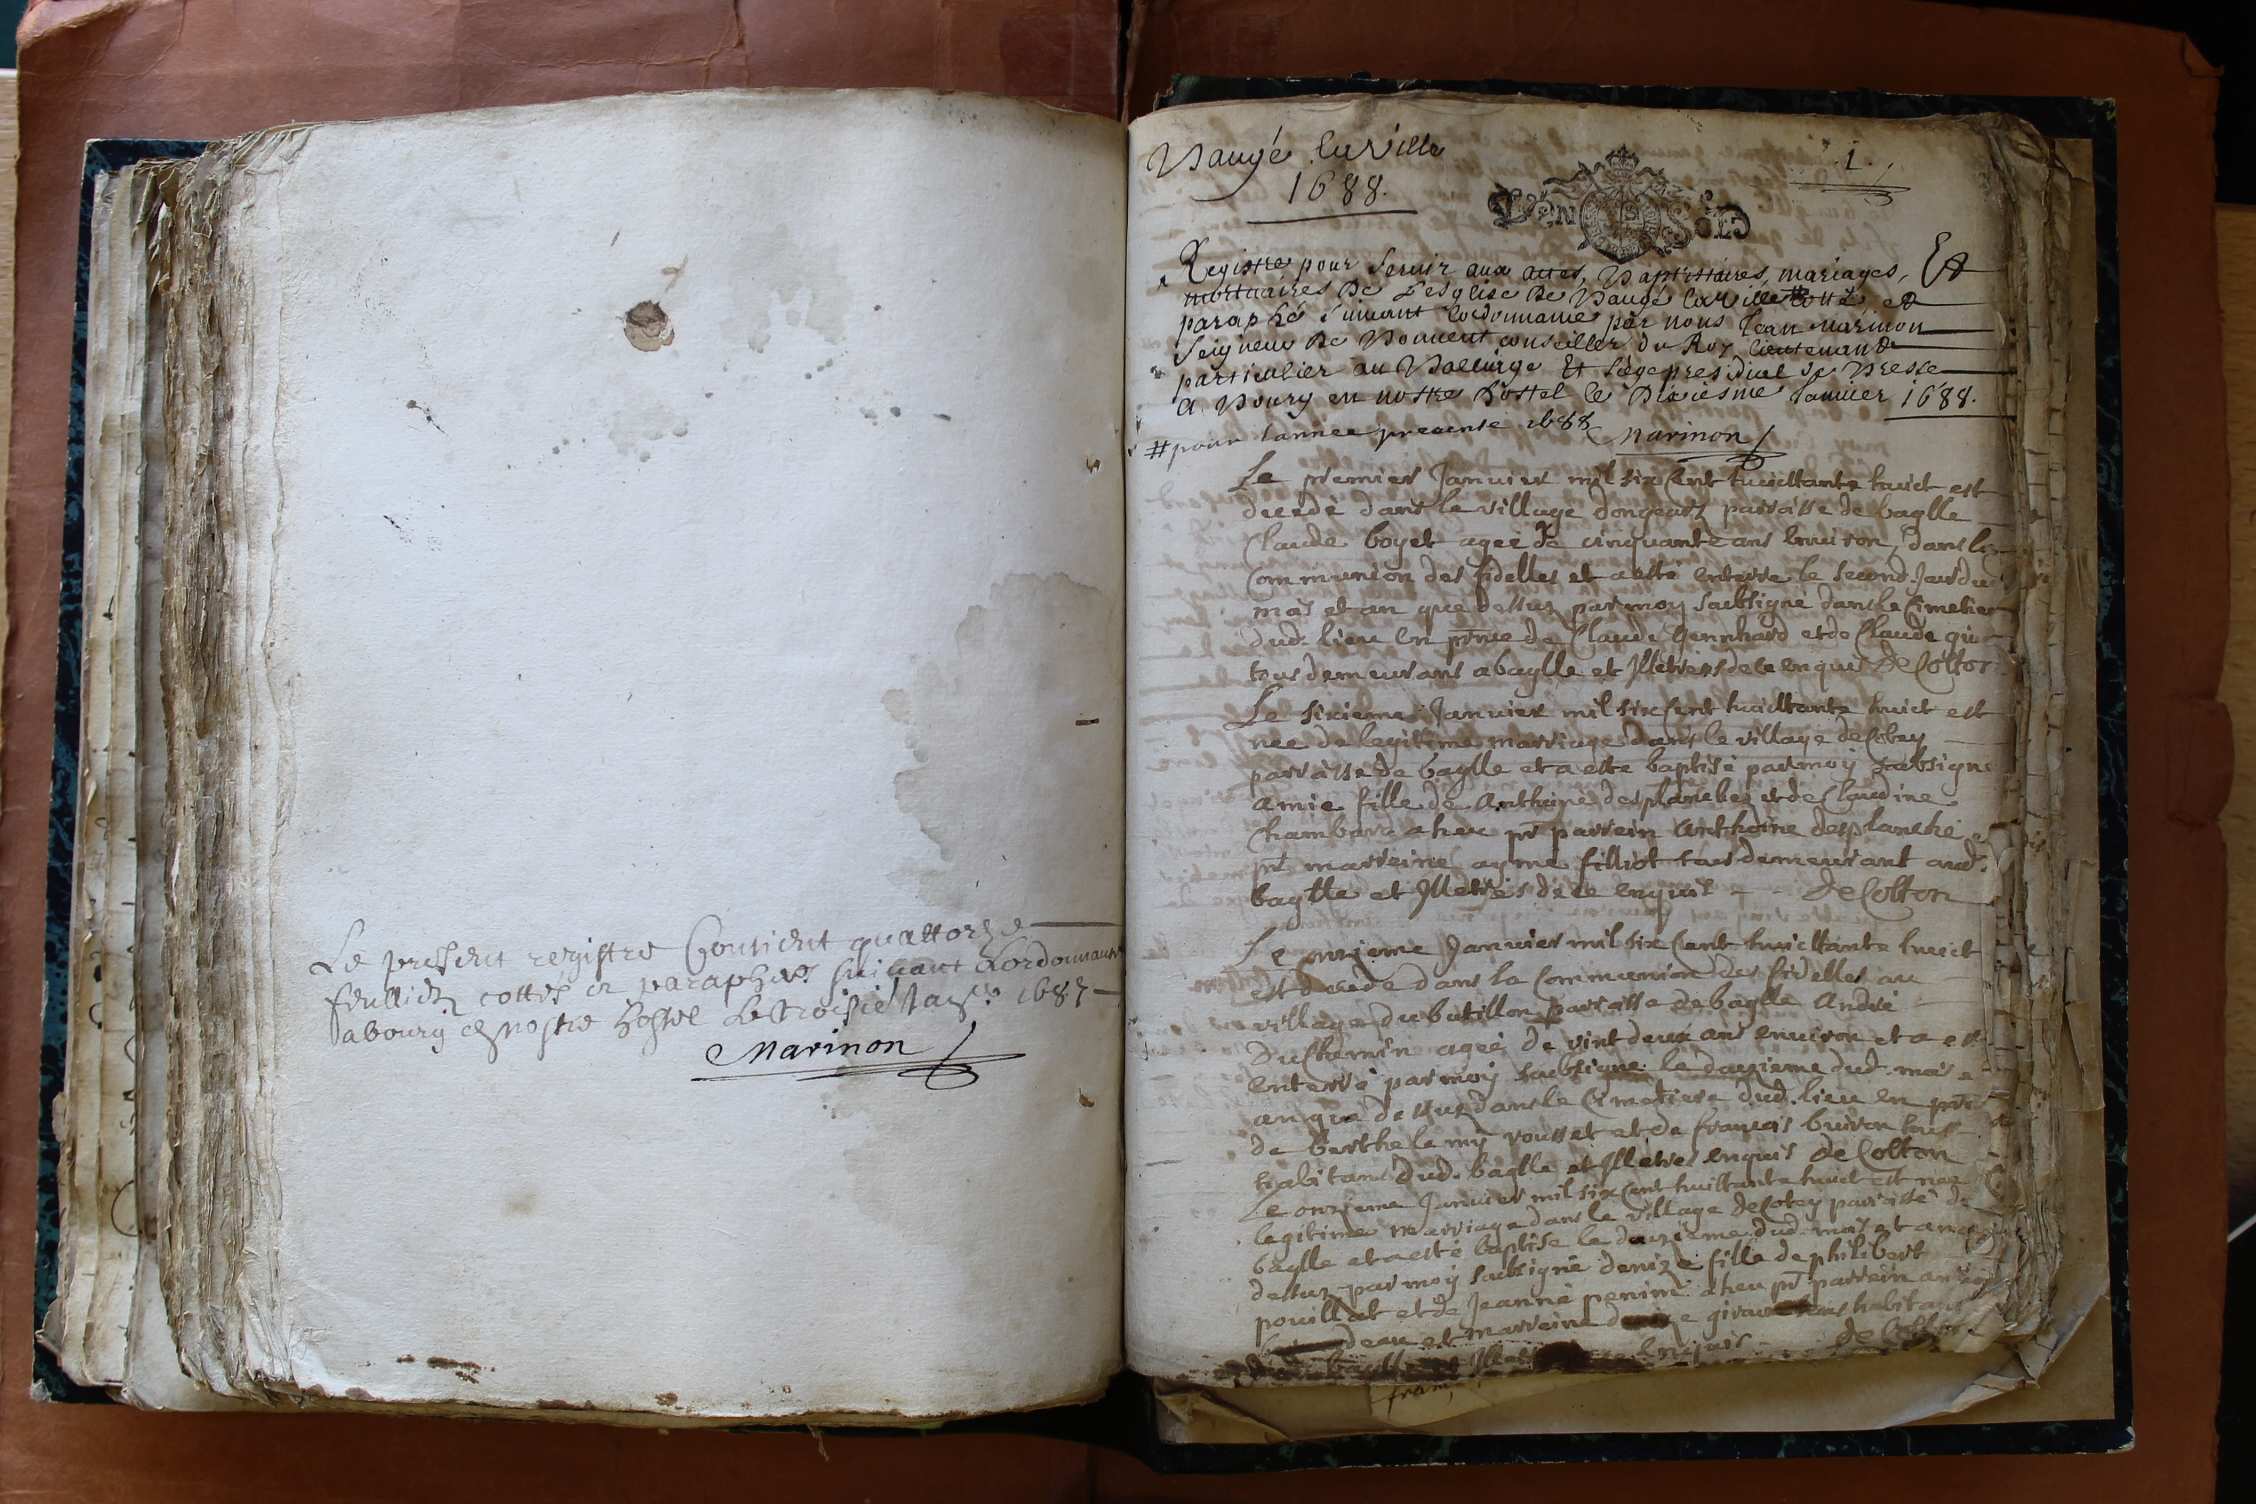 Le present registre Contient quattorze
feulliets cottés et paraphés suivant Lordonnance
a bourg en nostre hostel Le troisie Janer 1687
Marinon
Baugé la ville
1688.
1.
DEUX SOLS
Registre pour servir aux actes, Baptistaires, mariages, Et
mortuaires De L'esglise De Baugé la ville # Cotté et
paraphé suivant l'ordonnance par nous Jean Marinon
Seigneur De Bouvent conseiller du Roy lieutenant
particulier au Balliage Et siege presidial de Bresse
A Bourg en nostre hostel le Dixiesme Janvier 1688.
# pour lannee presente 1688 Marinon
Le premier Janvier mil six Cent huictante huict est
decedé dans le village dongeart parrasse de baglle
Claude boyet agee de cinquante ans Environ, dans la
Communion des fidelles et a esté enterre le second Jour du
mois et an que dessus par moy soubsigné dans le Cimetier
dud. lieu En pnce de Claude Gennhard et de Claude
tous demeurans a baglle et Illetres de ce enquis De Colton
Le sixieme Janvier mil six Cent huictante huict est
nee de legitime marriage dans le village de Cobey
parrasse de baglle et a este baptisé par moy soubsigne
amie fille de Anthoine desplanches et de Claudine
Chambard a heu pr parrein Anthoine desplanche et
pr marreine ayme filliot tous demeurant aud.
baglle et Illetres de ce enquis De Colton
Le onzieme Janvier mil six Cent huictante huict
est decede dans la Communion des fidelles au
village du butillon parrasse de baglle André
Duchemin agee de vint deux ans environ et a est
enterré par moy soubsigne le douzieme dud. mois e
an que dessus dans le Cimetiere dud. lieu en pnce
de berthelemy rousset et de francois buiron tous
habitans dud. baglle et Illetres enquis De Colton
Le onzieme Janvier mil six Cent huictante huict est nee
legitime marriage dans le village de Cobey parrasse de
baglle et a esté baptise le douzieme dud. mois et an que
dessus par moy soubsigné denize fille de philibert
pouillat et de Jeanne penin a heu pr parrein
deau et marreine denize giraud tous habitans
dud. baglle enquis De Colton